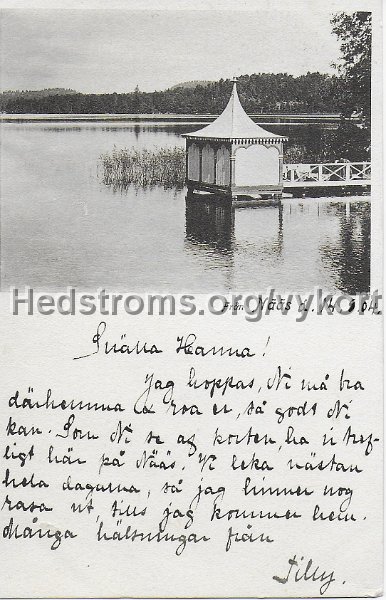 Hedstroms.org/vykort
Från Nääs d. 14 04.
Snälla Hanna!
Jag hoppas, Ni må bra
därhemma & roa er, så godt Ni
kan. Som Ni se af korten, ha vi tref-
ligt här på Nääs. Vi leka nästan
hela dagarna, så jag hinner nog
rasa ut, tills jag kommer hem.
Många hälsningar från
Tilly.